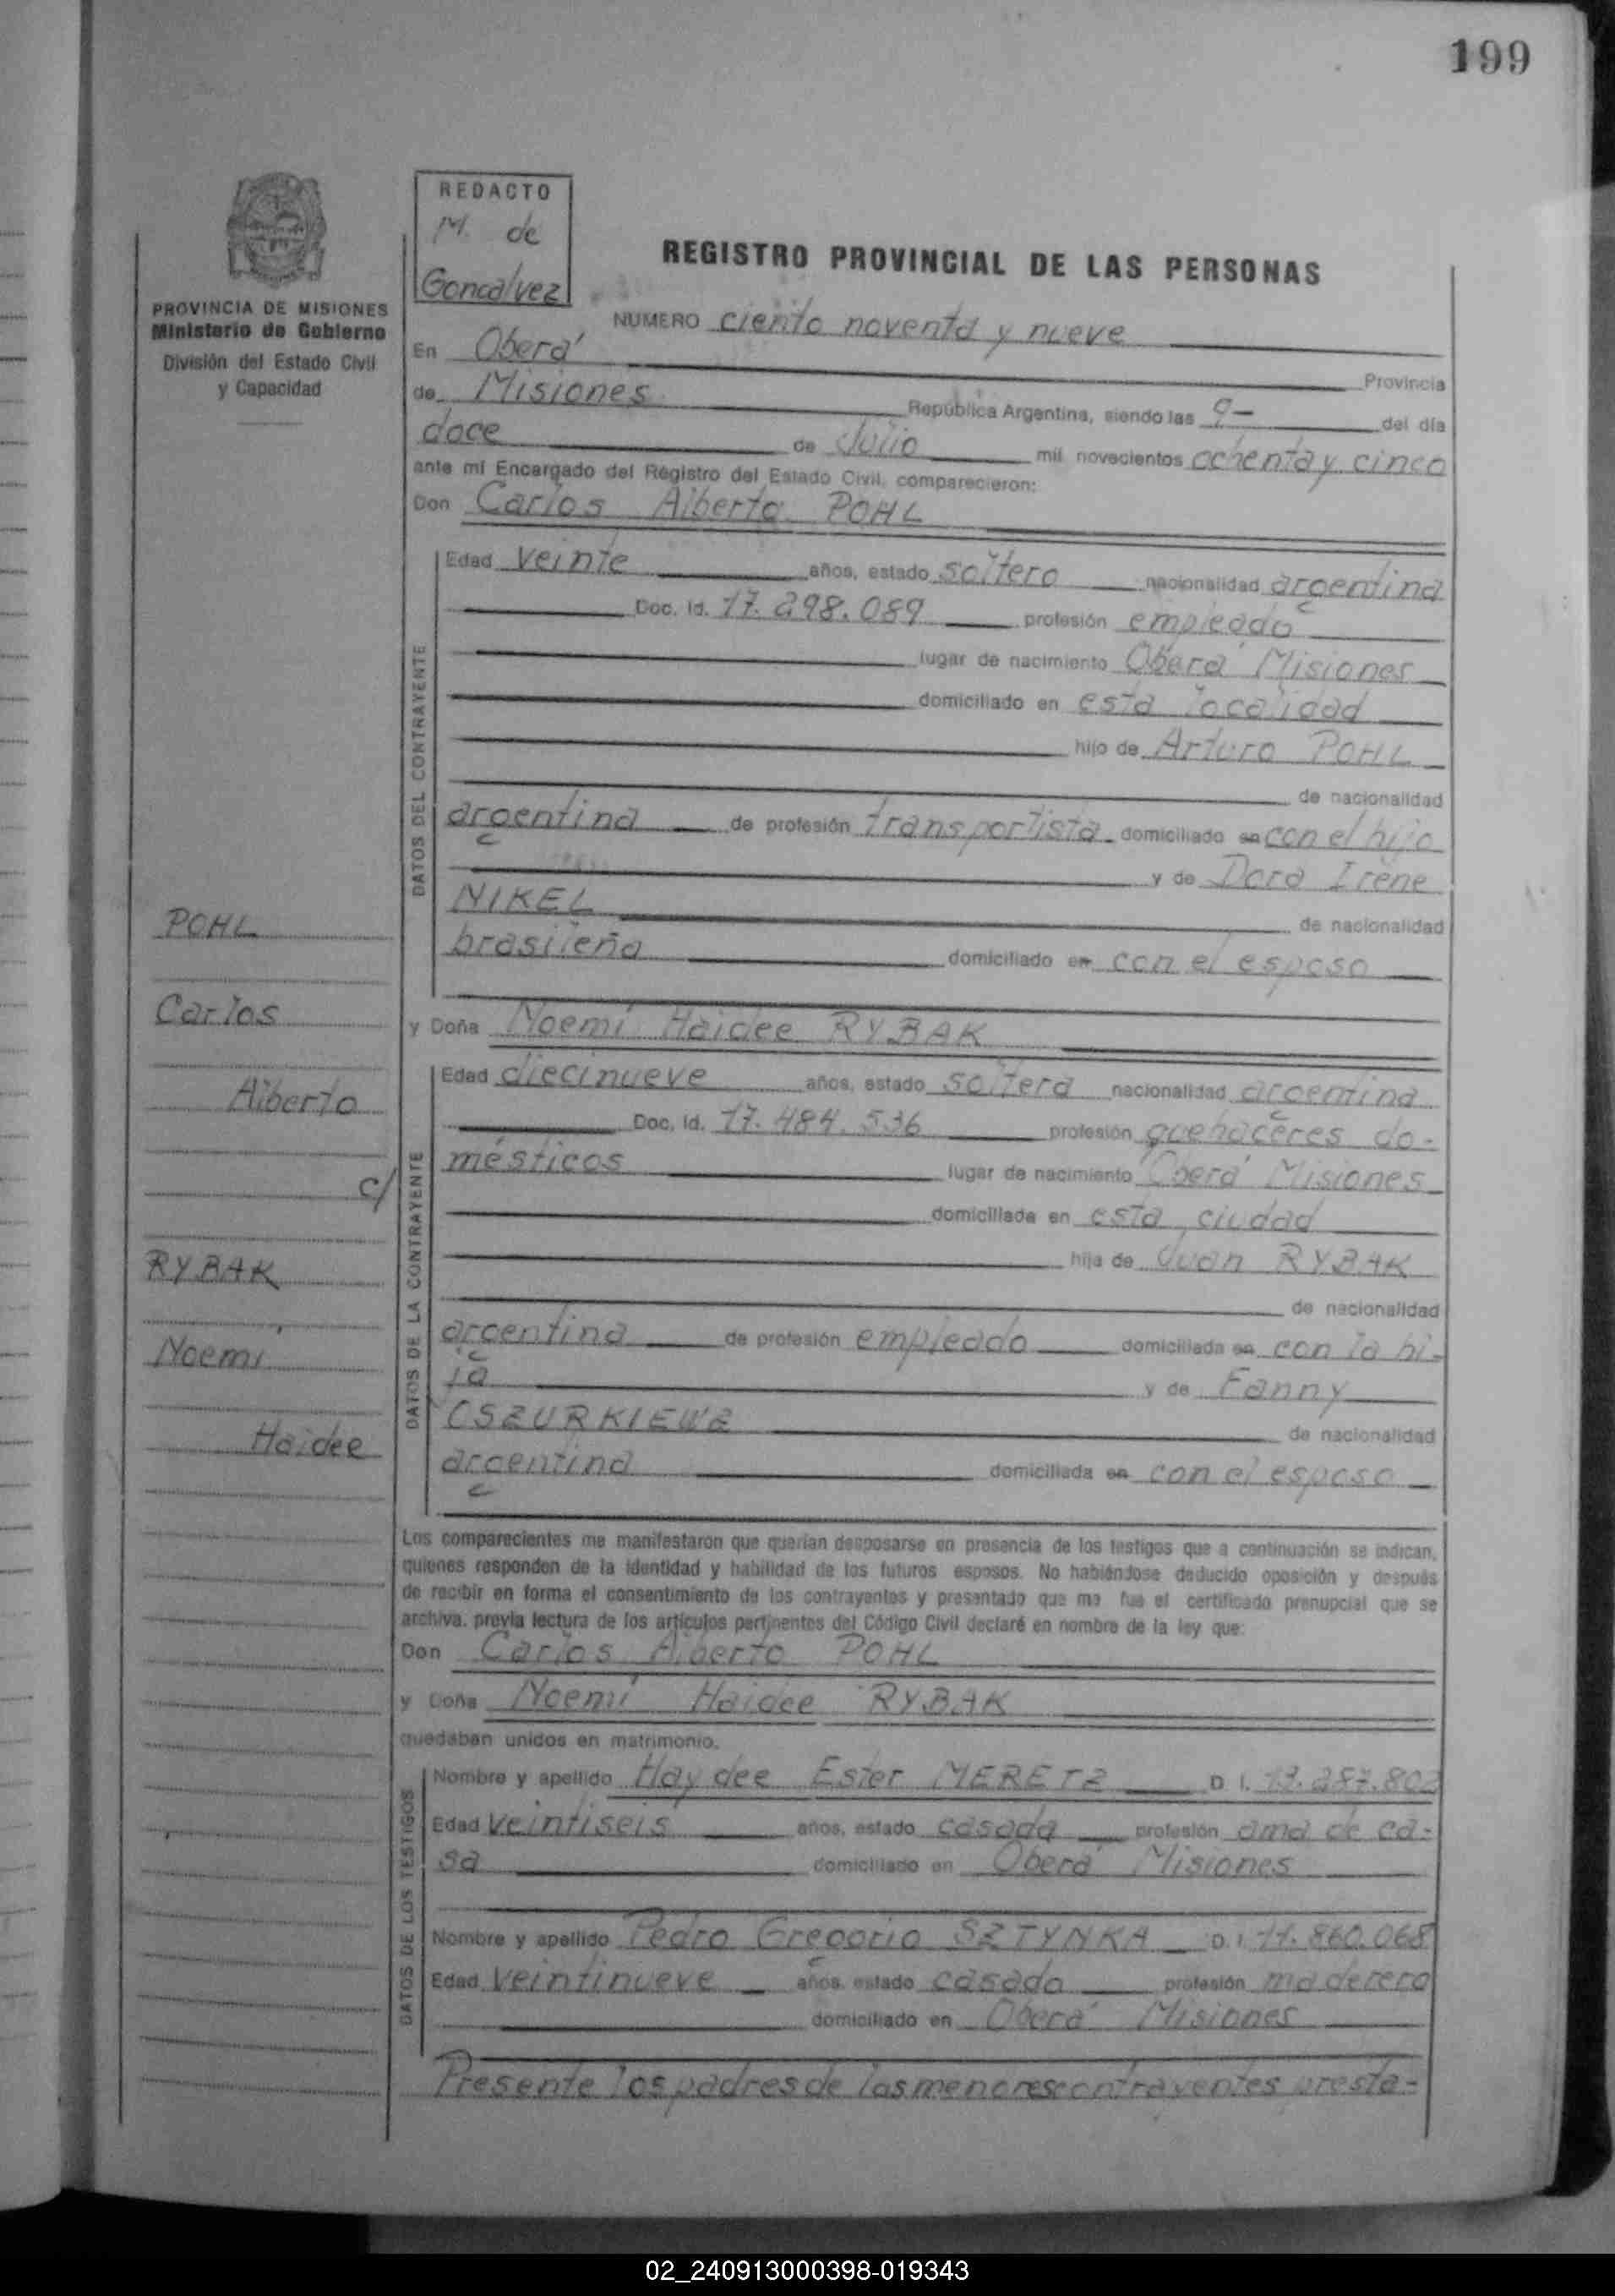 199
REDACTO
M. de
Goncalvez
PROVINCIA DE MISIONES
Ministerio de Gobierno
División del Estado Civil
y Capacidad
REGISTRO PROVINCIAL DE LAS PERSONAS
NUMERO ciento noventa y nueve
En Oberá Provincia
de Misiones República Argentina, siendo las 9- del día
doce de Julio mil novecientos ochenta y cinco
ante mí Encargado del Registro del Estado Civil, comparecieron:
Don Carlos Alberto POHL
DATOS DEL CONTRAYENTE
Edad veinte años, estado soltero nacionalidad argentina
Doc. Id. 17.298.089 profesión empleado
lugar de nacimiento Oberá Misiones
domiciliado en esta localidad
hijo de Arturo POHL
de nacionalidad
argentina de profesión transportista domiciliado en con el hijo
y de Dora Irene
NIKEL de nacionalidad
brasileña domiciliado en con el esposo
y Doña Noemí Haidee RYBAK
DATOS DE LA CONTRAYENTE
Edad diecinueve años, estado soltera nacionalidad argentina
Doc. Id. 17.484.536 profesión quehaceres do-
mésticos lugar de nacimiento Oberá Misiones
domiciliada en esta ciudad
hija de Juan RYBAK
de nacionalidad
argentina de profesión empleado domiciliada en con la hi-
ja y de Fanny
CSZURKIEWZ de nacionalidad
argentina domiciliada en con el esposo
POHL
Carlos
Alberto
c/
RYBAK
Noemí
Haidee
Los comparecientes me manifestaron que querían desposarse en presencia de los testigos que a continuación se indican,
quienes responden de la identidad y habilidad de los futuros esposos. No habiéndose deducido oposición y después
de recibir en forma el consentimiento de los contrayentes y presentado que me fue el certificado prenupcial que se
archiva, previa lectura de los artículos pertinentes del Código Civil declaré en nombre de la ley que:
Don Carlos Alberto POHL
y Doña Noemí Haidee RYBAK
quedaban unidos en matrimonio.
DATOS DE LOS TESTIGOS
Nombre y apellido Haydee Ester MERETZ D. I. 13.287.802
Edad veintiseis años, estado casada profesión ama de ca-
sa domiciliado en Oberá Misiones
Nombre y apellido Pedro Gregorio SZTYNKA D. I. 11.860.068
Edad veintinueve años, estado casado profesión maderero
domiciliado en Oberá Misiones
Presente los padres de los menores contrayentes presta-
02_240913000398-019343